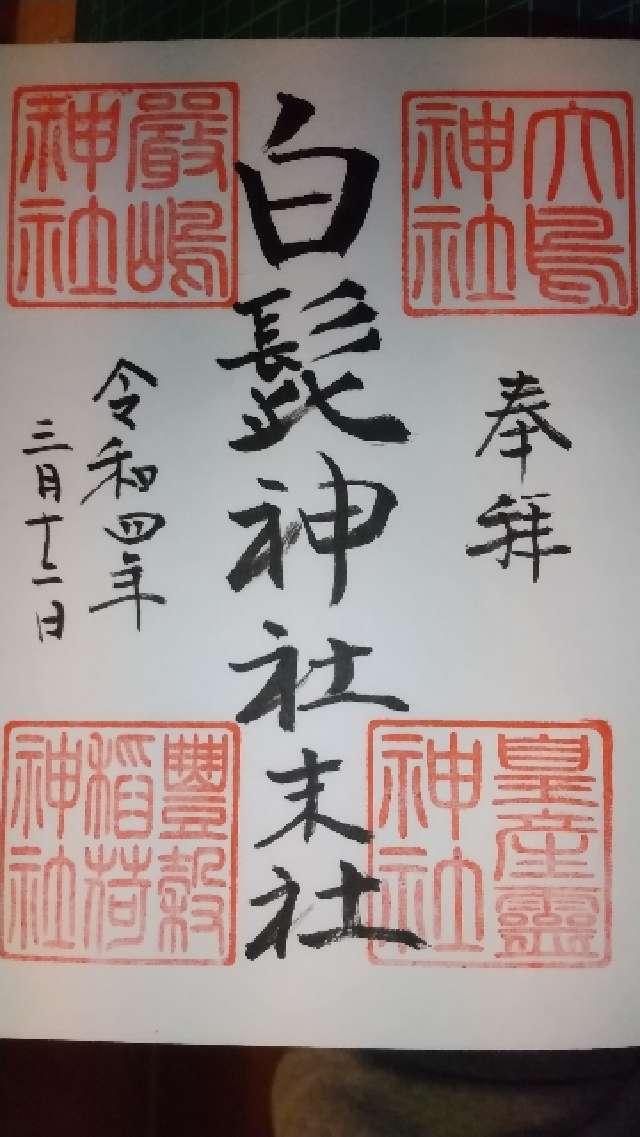 大鳥神社
皇産靈神社
奉拝
白髭神社末社
嚴嶋神社
豐穀稲荷神社
令和四年
三月十二日